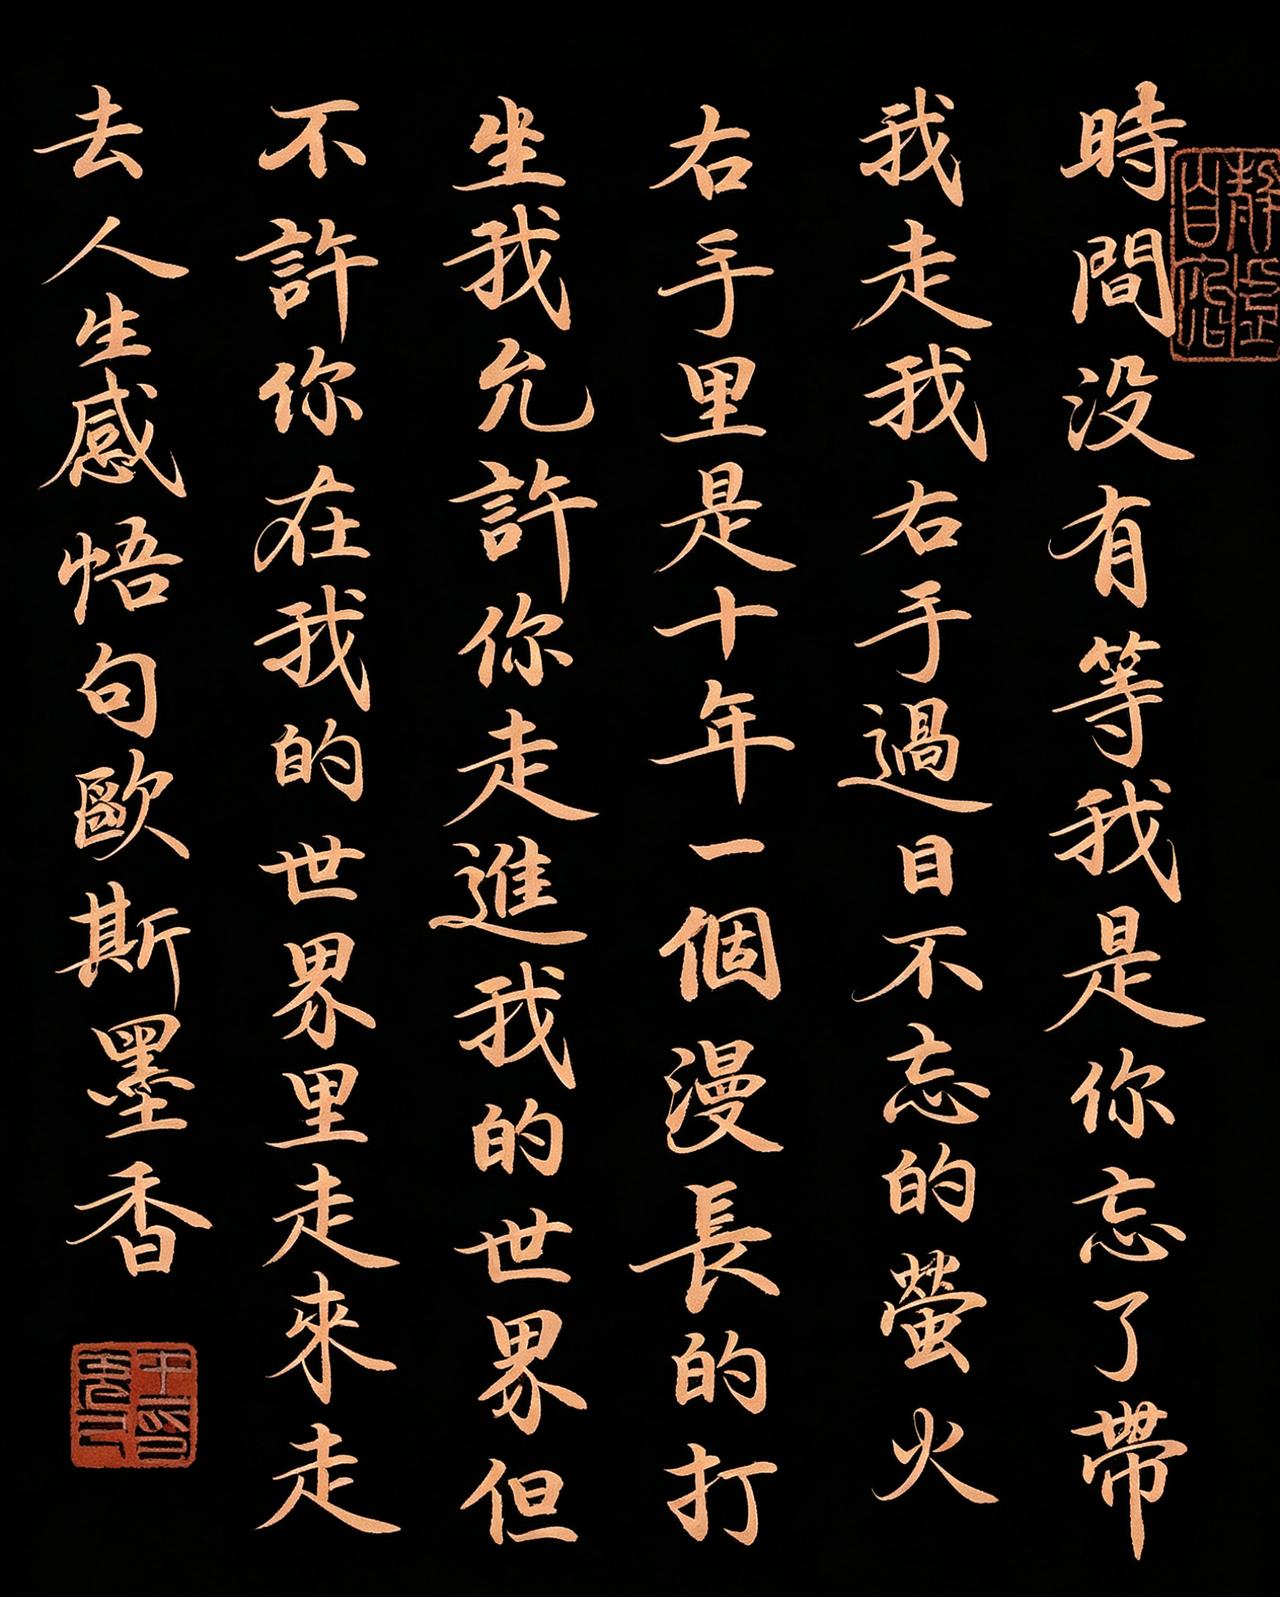 時間没有等我是你忘了帶
我走我右手過目不忘的螢火
右手里是十年一個漫長的打
坐我允許你走進我的世界但
不許你在我的世界里走來走
去人生感悟句歐斯墨香